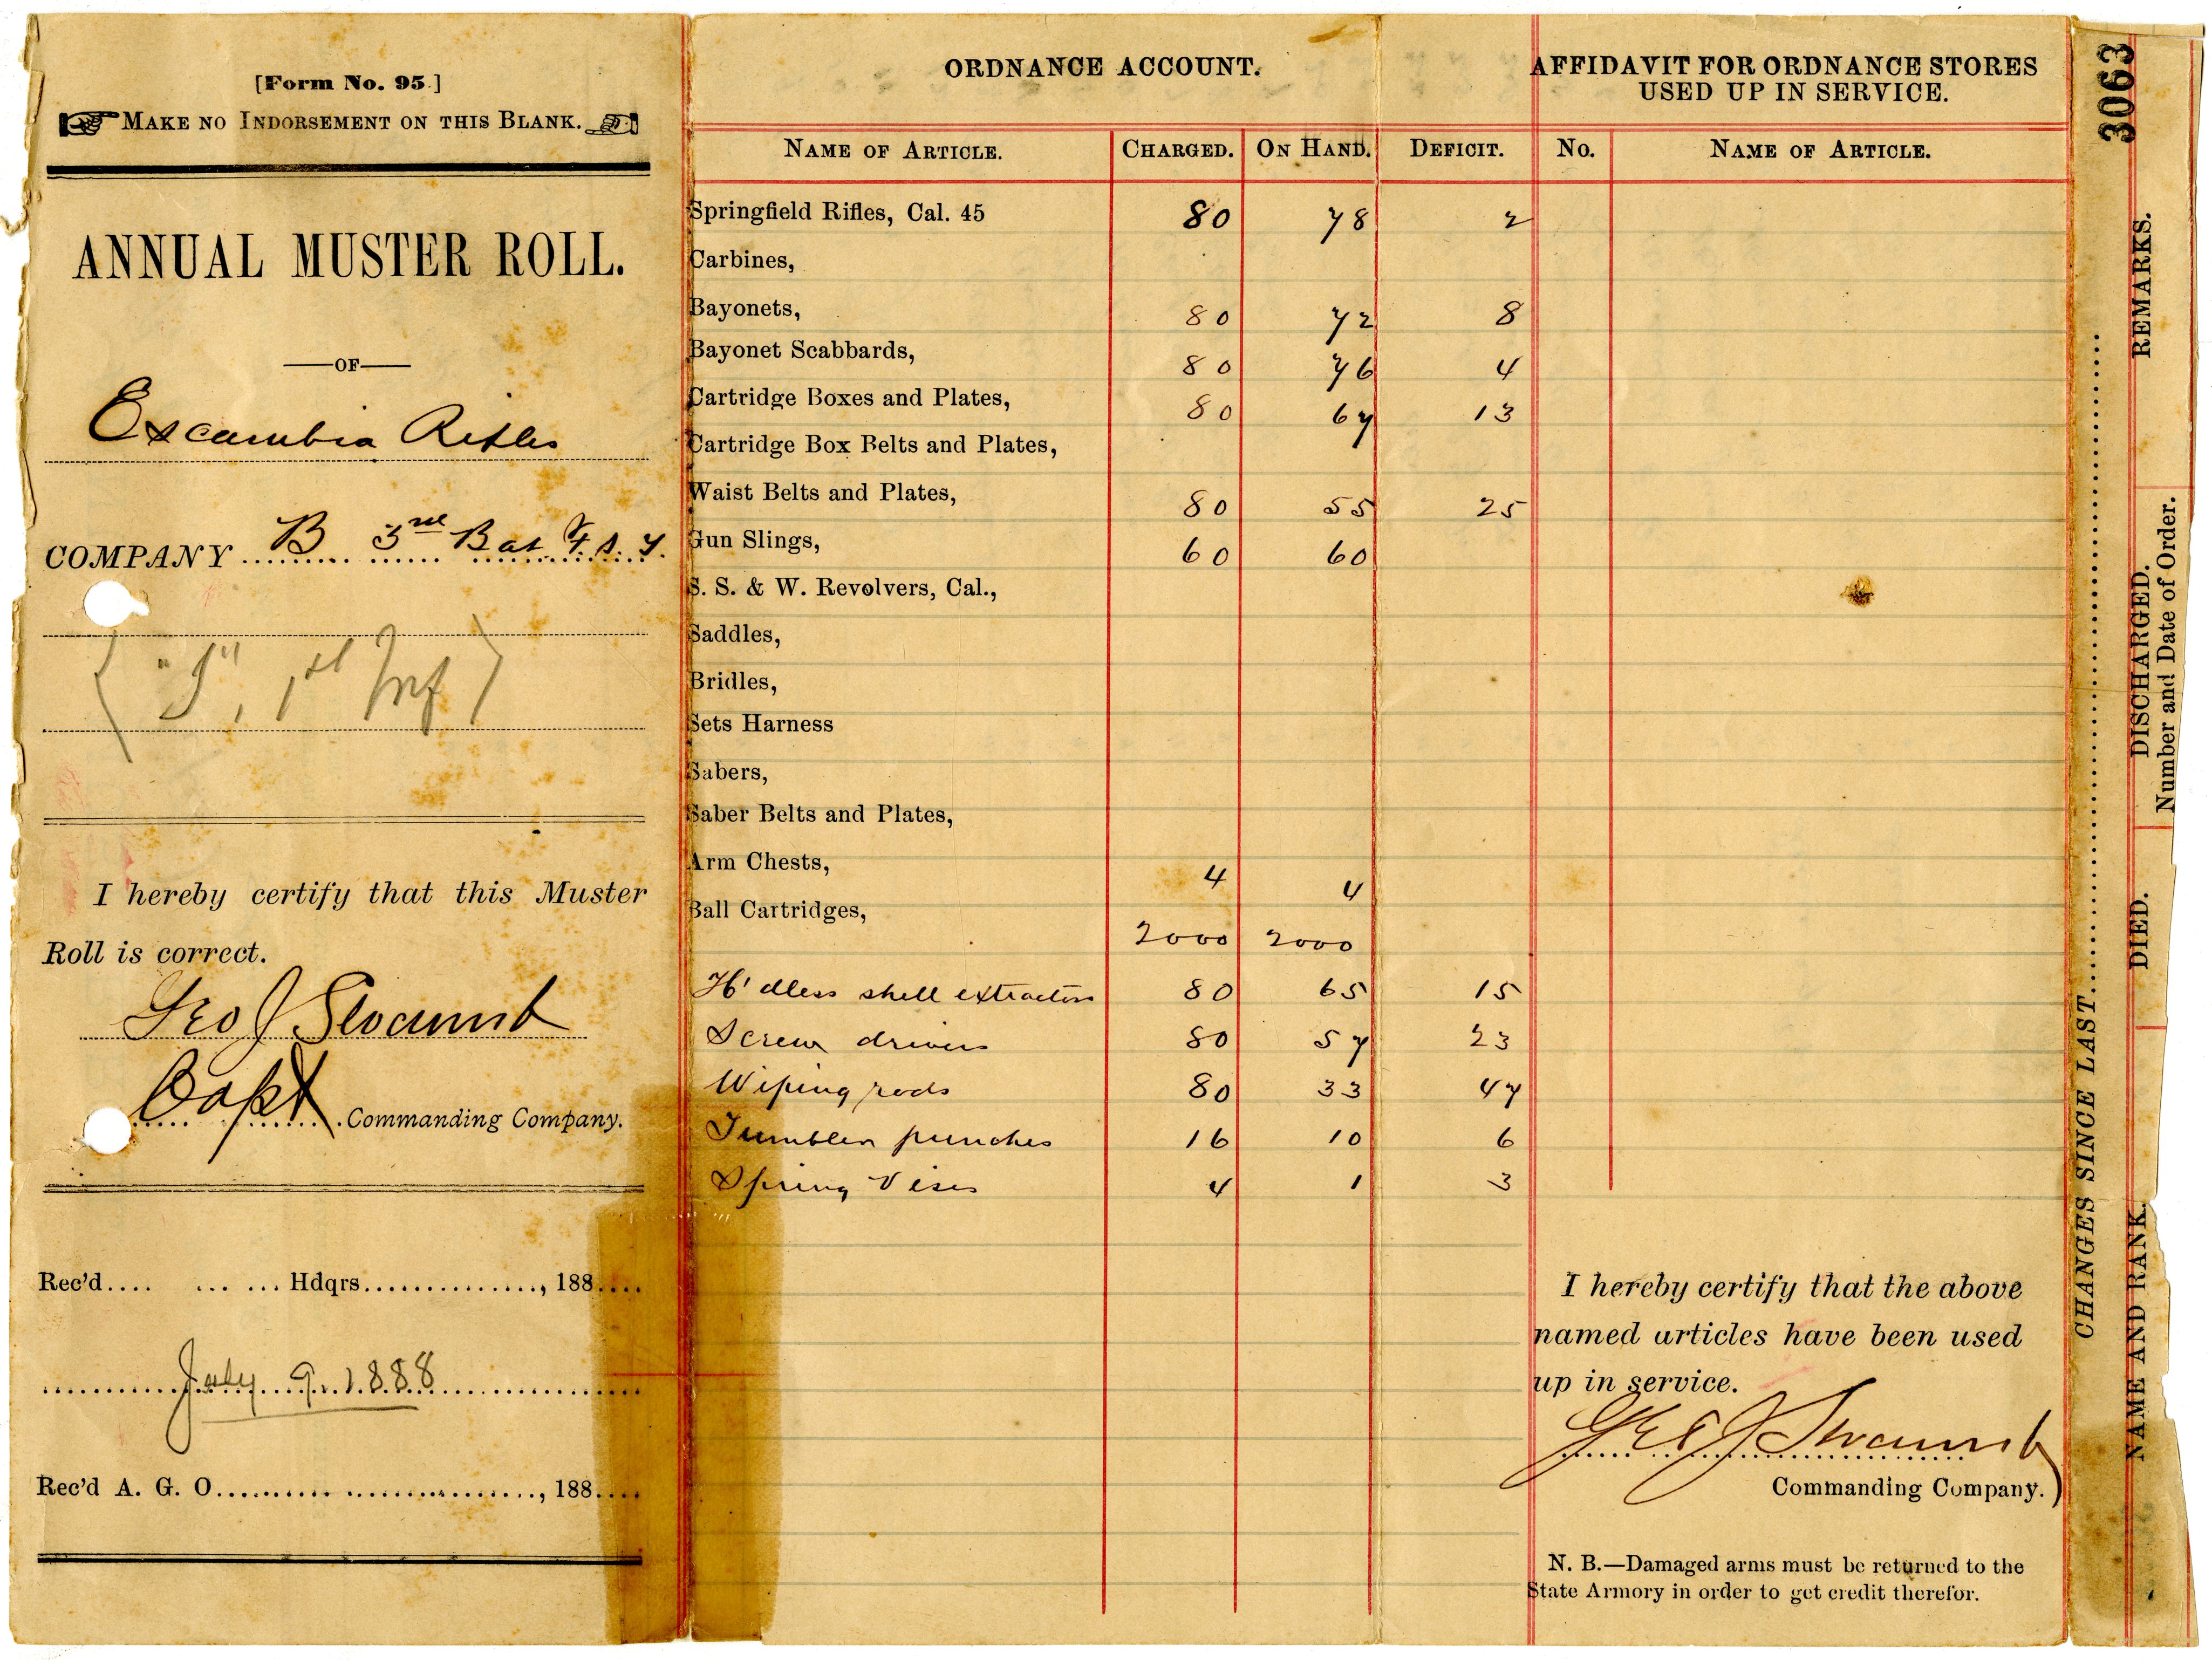 [Form No. 95.]
MAKE NO INDORSEMENT ON THIS BLANK.
ANNUAL MUSTER ROLL.
—OF—
Escambia Rifles
COMPANY B 3rd Bat. F. S. T.
("I", 1st Inf)
I hereby certify that this Muster
Roll is correct.
Geo J Slocumb
Capt Commanding Company.
Rec'd.... ... ... Hdqrs................, 188....
July 9. 1888
Rec'd A. G. O.........................., 188....
ORDNANCE ACCOUNT.
NAME OF ARTICLE. CHARGED. ON HAND. DEFICIT.
Springfield Rifles, Cal. 45 80 78 2
Carbines,
Bayonets, 80 72 8
Bayonet Scabbards, 80 76 4
Cartridge Boxes and Plates, 80 67 13
Cartridge Box Belts and Plates,
Waist Belts and Plates, 80 55 25
Gun Slings, 60 60
S. S. & W. Revolvers, Cal.,
Saddles,
Bridles,
Sets Harness
Sabers,
Saber Belts and Plates,
Arm Chests, 4 4
Ball Cartridges, 2000 2000
H'dless shell extractors 80 65 15
Screw drivers 80 57 23
Wiping rods 80 33 47
Tumbler punches 16 10 6
Spring Vises 4 1 3
AFFIDAVIT FOR ORDNANCE STORES
USED UP IN SERVICE.
NO. NAME OF ARTICLE.
I hereby certify that the above
named articles have been used
up in service.
Geo J Slocumb
Commanding Company.
N. B.—Damaged arms must be returned to the
State Armory in order to get credit therefor.
3063
CHANGES SINCE LAST
NAME AND RANK. DIED. DISCHARGED. REMARKS.
Number and Date of Order.